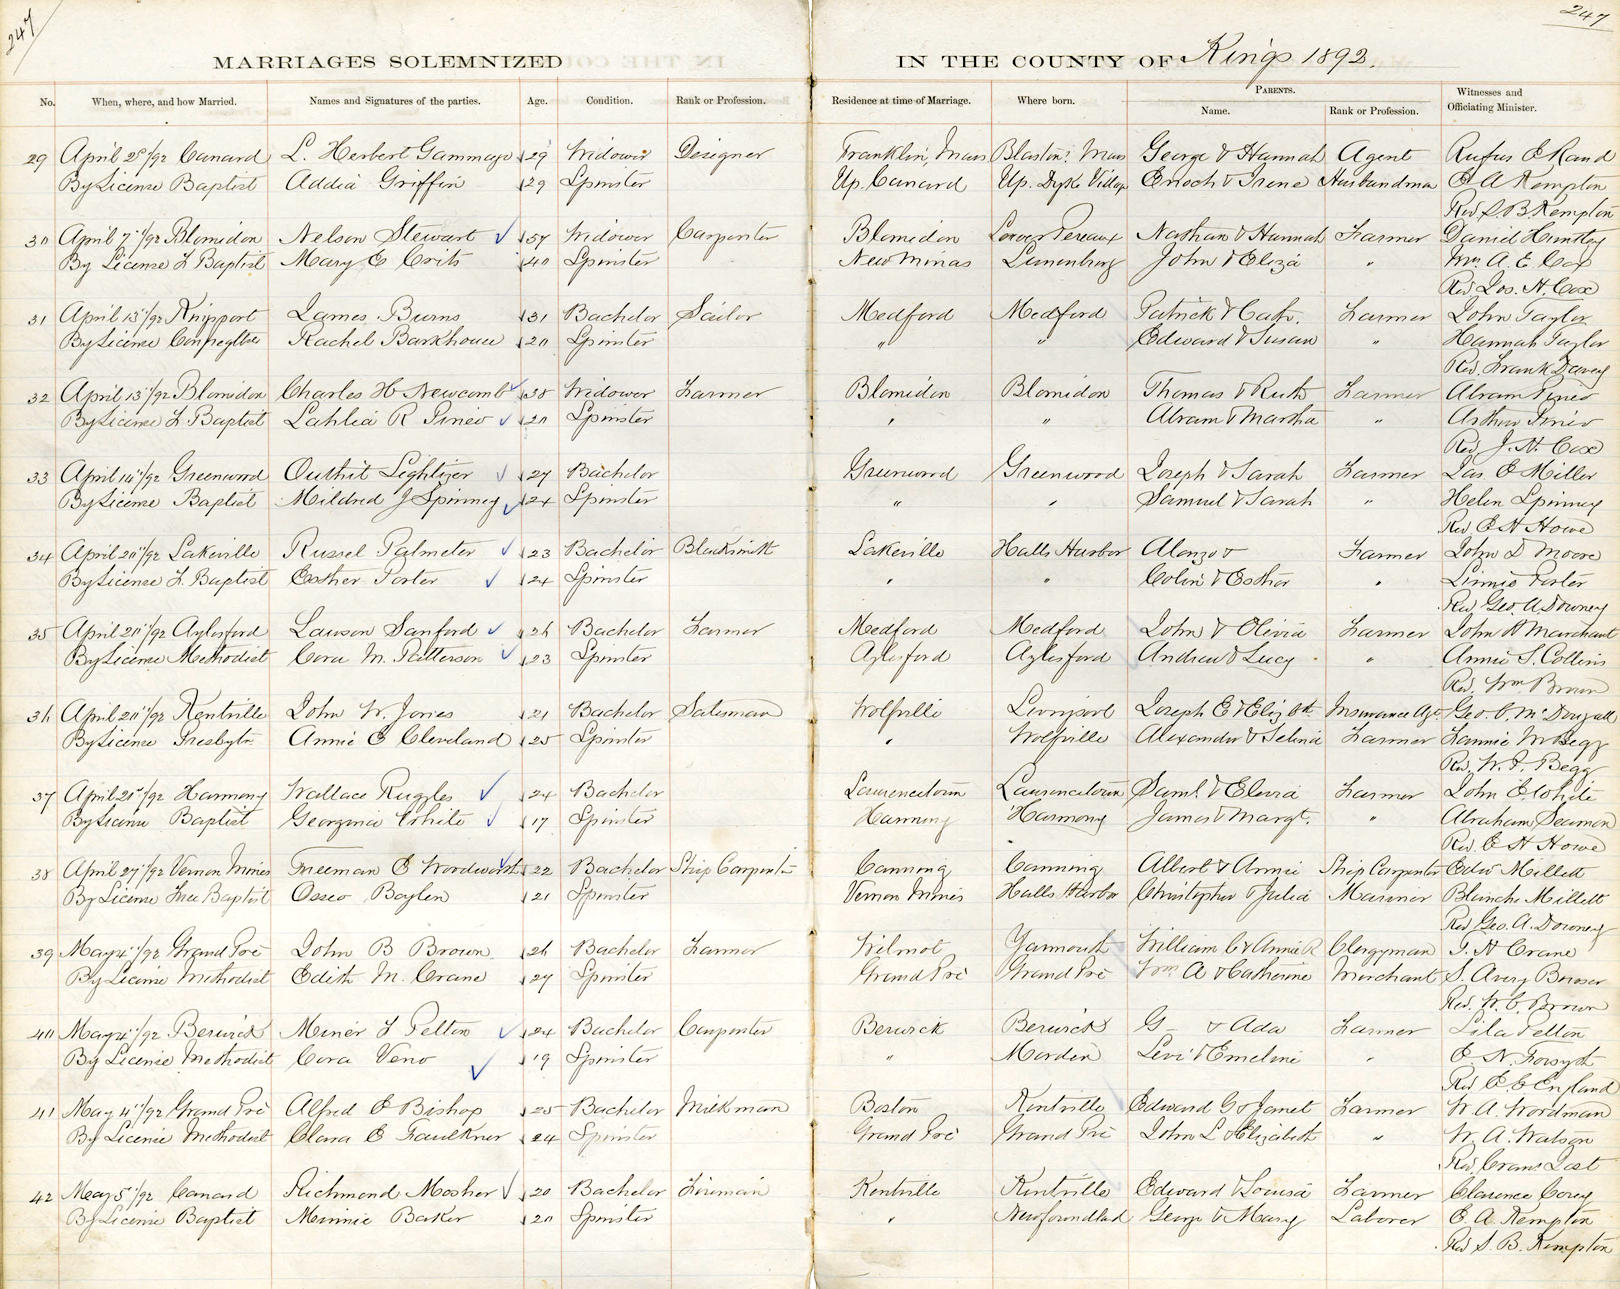 247
247
MARRIAGES SOLEMNIZED IN THE COUNTY OF Kings 1892.
No. When, where, and how Married. Names and Signatures of the parties. Age. Condition. Rank or Profession. Residence at time of Marriage. Where born. PARENTS. Name. Rank or Profession. Witnesses and Officiating Minister.
29 April /92 Canard L. Herbert Gammage 29 Widower Designer Franklin, Mass Mass George & Hannah Agent Rufus E Rand
By License Baptist Addia Griffin 29 Spinster Up. Canard Up. Dyke Village Enoch & Irene Husbandman E A Kempton
Rev S. B. Kempton
30 April 7"/92 Blomidon Nelson Stewart 57 Widower Carpenter Blomidon Lower Pereaux Nathan & Hannah Farmer Daniel Huntley
By License F Baptist Mary E Crits 40 Spinster New Minas Lunenburg John & Eliza " Mrs. A. E. Cox
Rev Jos. H. Cox
31 April 13"/92 Kingsport James Burns 31 Bachelor Sailor Medford Medford Patrick & Cath. Farmer John Taylor
By License Rachel Barkhouse 20 Spinster " " Edward & Susan " Hannah Taylor
Rev. Frank Davey
32 April 13"/92 Blomidon Charles H Newcomb 38 Widower Farmer Blomidon Blomidon Thomas & Ruth Farmer Abram Pineo
By License F Baptist Lahlia R Pineo 20 Spinster " " Abram & Martha " Arthur Pineo
Rev J. H. Cox
33 April 14"/92 Greenwood Outhit Lightizer 27 Bachelor Greenwood Greenwood Joseph & Sarah Farmer Jas E Miller
By License Baptist Mildred J Spinney 24 Spinster " " Samuel & Sarah " Helen Spinney
Rev E H Howe
34 April 20"/92 Lakeville Russel Palmeter 23 Bachelor Blacksmith Lakeville Halls Harbor Alonzo & Farmer John D Moore
By License F. Baptist Esther Porter 24 Spinster " " Colin & Esther " Linnie Porter
Rev Geo. A. Downey
35 April 20"/92 Aylesford Lawson Sanford 26 Bachelor Farmer Medford Medford John & Olivia Farmer John H Marchant
By License Methodist Cora M. Patterson 23 Spinster Aylesford Aylesford Andrew & Lucy " Annie S. Collins
Rev. Wm Brown
36 April 20"/92 Kentville John W. Jones 21 Bachelor Salesman Wolfville Liverpool Joseph E & Elizbth Insurance Agt Geo. C. McDougall
By License Presbytn Annie E Cleveland 25 Spinster " Wolfville Alexander & Selina Farmer Fannie M Begg
Rev. W. P. Begg
37 April 20"/92 Harmony Wallace Ruggles 24 Bachelor Lawrencetown Lawrencetown Saml. & Elevia Farmer John E White
By License Baptist Georgina White 17 Spinster Harmony Harmony James & Margt. " Abraham Seamon
Rev. E H Howe
38 April 27"/92 Vernon Mines Freeman E Wordworth 22 Bachelor Ship Carpenter Canning Canning Albert & Annie Ship Carpenter Edw Millett
By License Free Baptist Osseo Boylen 21 Spinster Vernon Mines Halls Harbor Christopher & Julia Mariner Blanche Millett
Rev Geo. A. Downey
39 May 4"/92 Grand Pré John B Brown 26 Bachelor Farmer Wilmot Yarmouth William C & Annie R Clergyman J. H Crane
By License Methodist Edith M. Crane 27 Spinster Grand Pré Grand Pré Wm A & Catherine Merchant S. Avery Bowser
Rev. W. C. Brown
40 May 4"/92 Berwick Miner F Pelton 24 Bachelor Carpenter Berwick Berwick G & Ada Farmer Lila Pelton
By License Methodist Cora Veno 19 Spinster " Morden Levi & Emeline " E. N. Forsyth
Rev E. E England
41 May 4"/92 Grand Pré Alfred E Bishop 25 Bachelor Milkman Boston Kentville Edward G & Janet Farmer W. A. Wordman
By License Methodist Clara E Faulkner 24 Spinster Grand Pré Grand Pré John L & Elizabeth " W. A. Watson
Rev. Crans Jost
42 May 5"/92 Canard Richmond Mosher 20 Bachelor Fireman Kentville Kentville Edward & Louisa Farmer Clarence Corey
By License Baptist Minnie Baker 20 Spinster " Newfoundland George & Mary Laborer E. A. Kempton
Rev S. B. Kempton